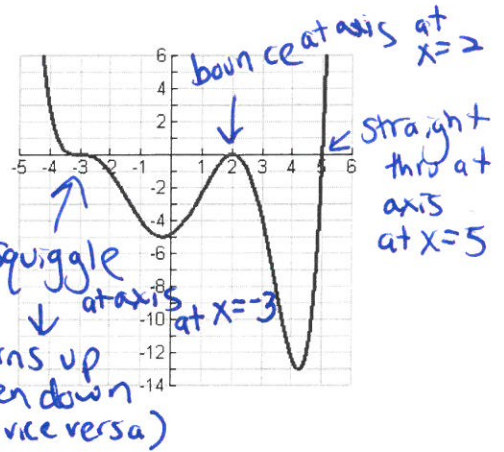 bounce at axis at
x=2
straight
thru at
axis
at x=5
squiggle
at axis
at x=-3
down
vice versa)
6
4
2
-5 -4 -3 -2 -1 0 1 2 3 4 5 6
-2
-4
-6
-8
-10
-12
-14